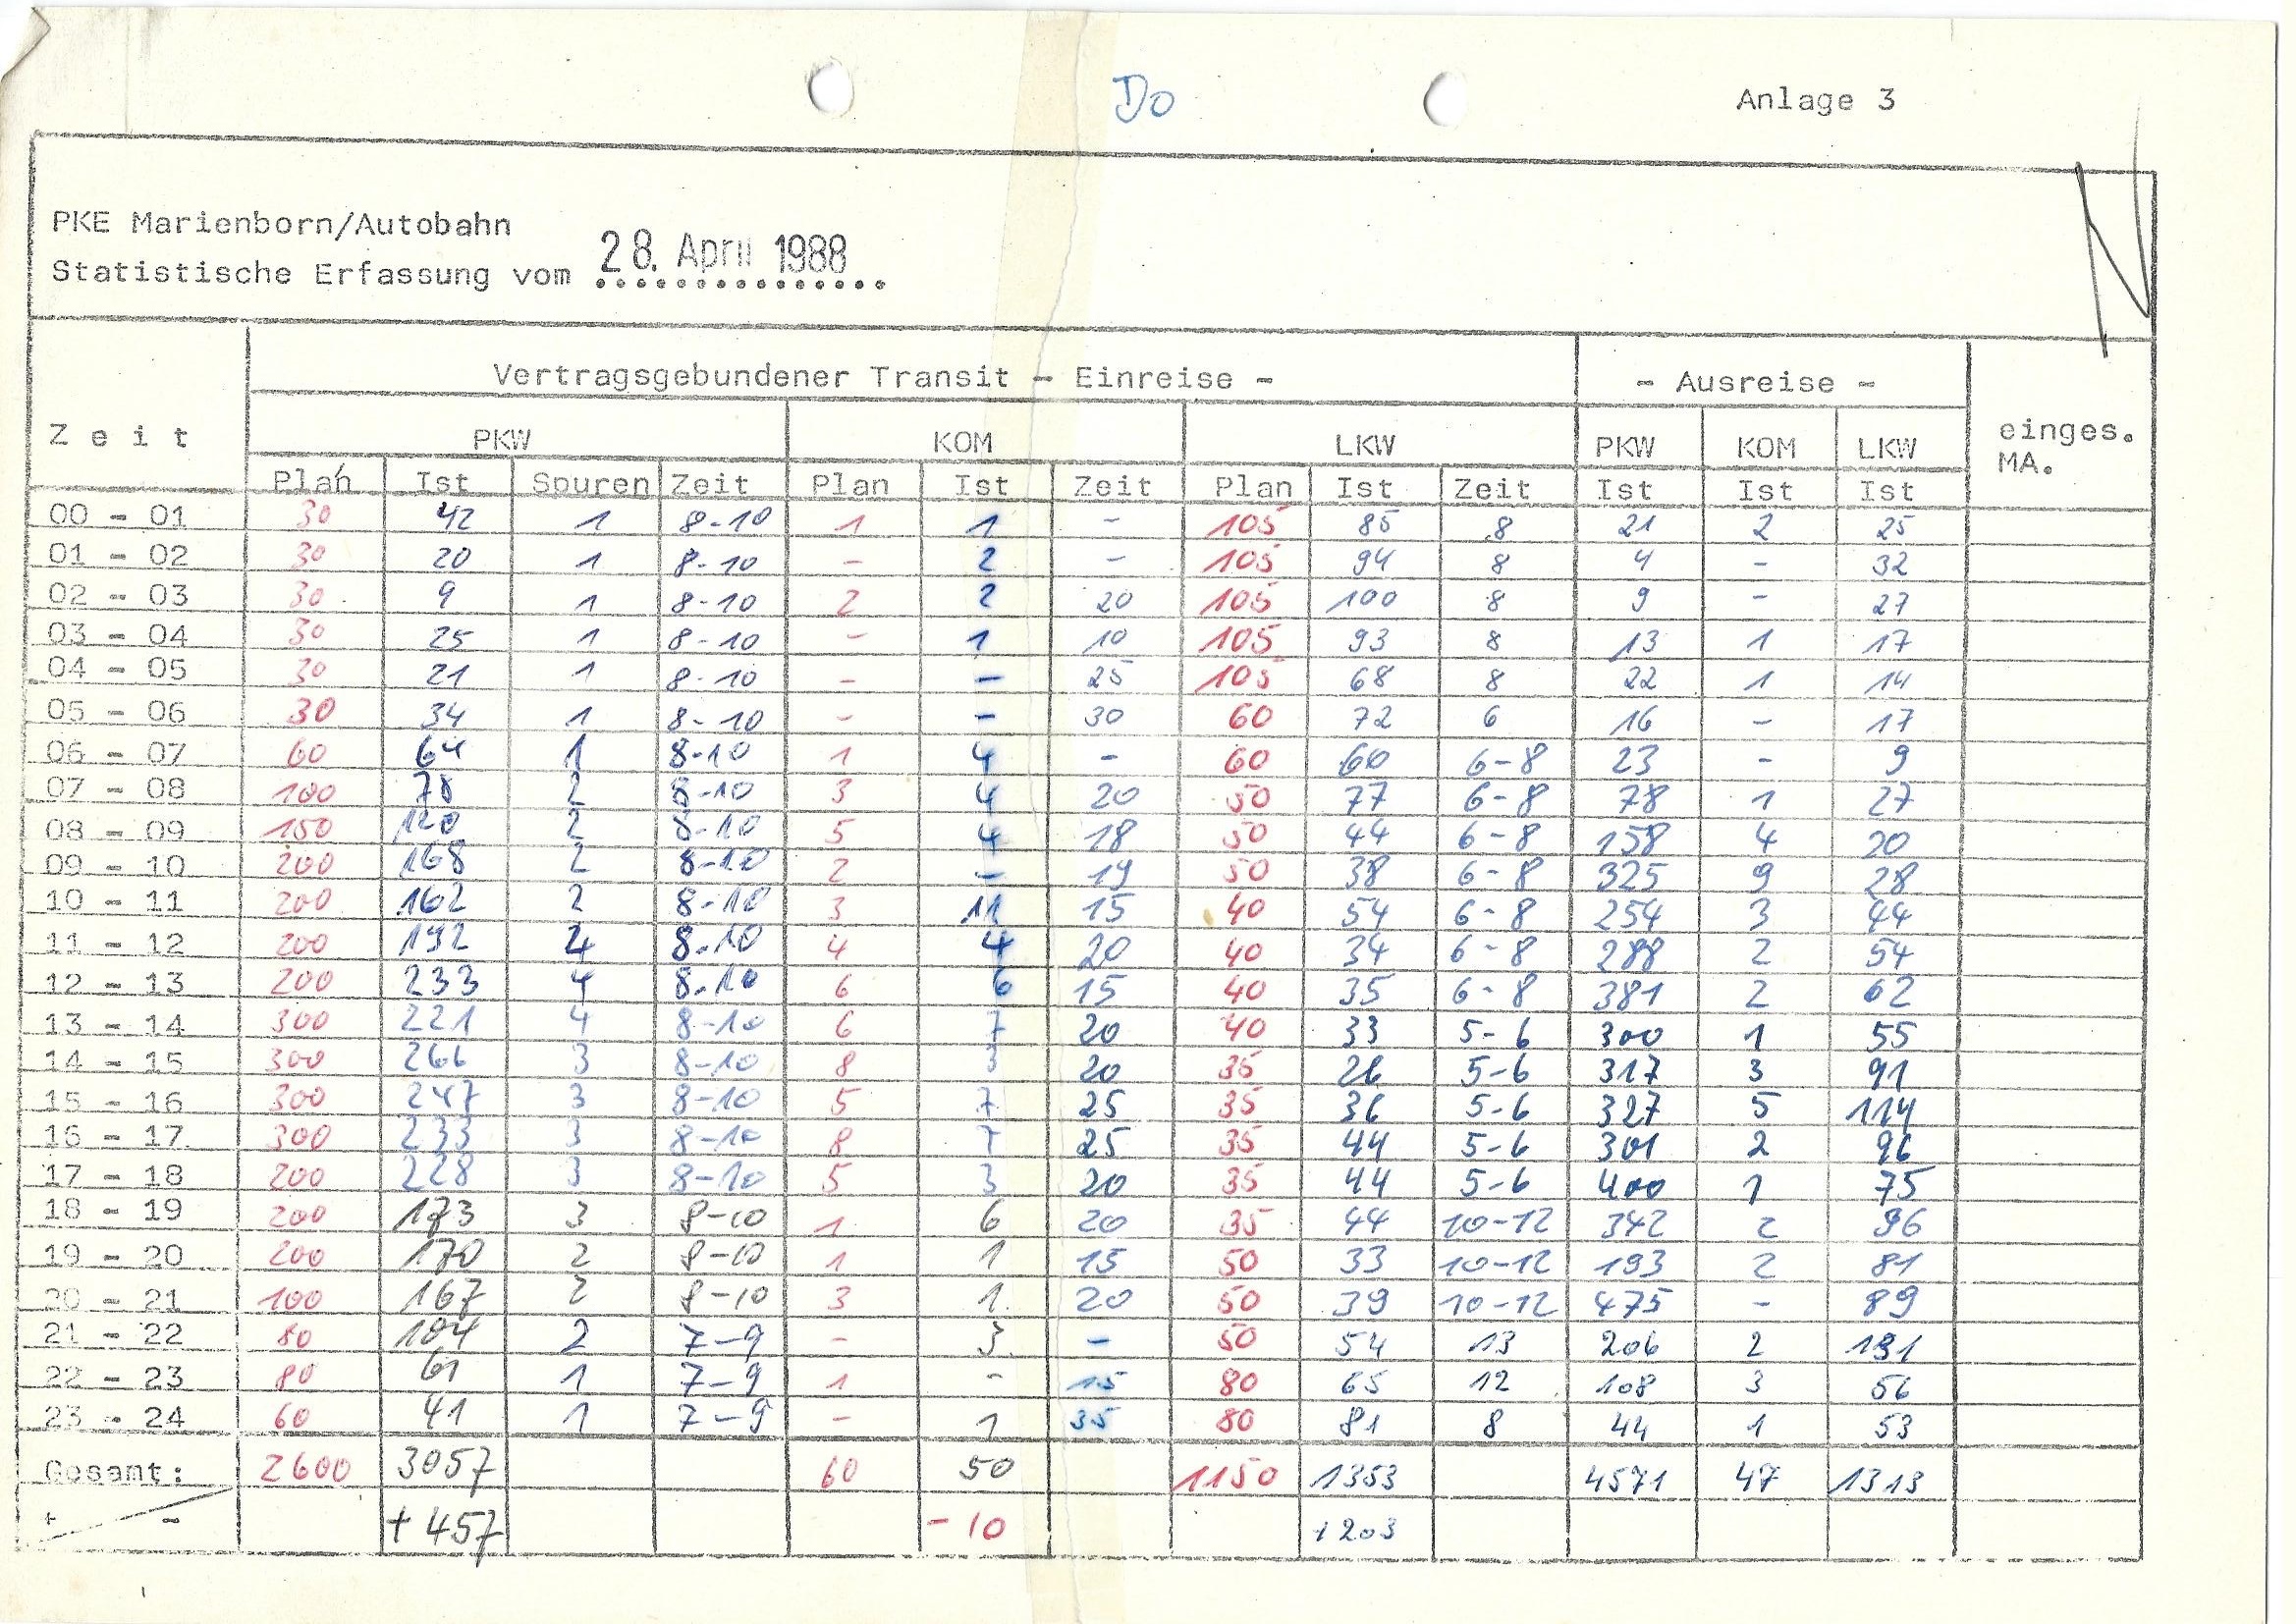 Do
Anlage 3
PKE Marienborn/Autobahn
Statistische Erfassung vom 28. April 1988
Vertragsgebundener Transit - Einreise - - Ausreise -
Z e i t PKW KOM LKW PKW KOM LKW einges. MA.
Plan Ist Spuren Zeit Plan Ist Zeit Plan Ist Zeit Ist Ist Ist
00 - 01 30 42 1 8-10 1 1 - 105 85 8 21 2 25
01 - 02 30 20 1 8-10 - 2 - 105 94 8 4 - 32
02 - 03 30 9 1 8-10 2 2 20 105 100 8 9 - 27
03 - 04 30 25 1 8-10 - 1 10 105 93 8 13 1 17
04 - 05 30 21 1 8-10 - - 25 105 68 8 22 1 14
05 - 06 30 34 1 8-10 - - 30 60 72 6 16 - 17
06 - 07 60 64 1 8-10 1 4 - 60 60 6-8 23 - 9
07 - 08 100 78 2 8-10 3 4 20 50 77 6-8 78 1 27
08 - 09 150 120 2 8-10 5 4 18 50 44 6-8 158 4 20
09 - 10 200 168 2 8-10 2 - 19 50 38 6-8 325 9 28
10 - 11 200 162 2 8-10 3 11 15 40 54 6-8 254 3 44
11 - 12 200 192 4 8-10 4 4 20 40 34 6-8 288 2 54
12 - 13 200 233 4 8-10 6 6 15 40 35 6-8 381 2 62
13 - 14 300 221 4 8-10 6 7 20 40 33 5-6 300 1 55
14 - 15 300 266 3 8-10 8 3 20 35 26 5-6 317 3 91
15 - 16 300 247 3 8-10 5 7 25 35 36 5-6 327 5 114
16 - 17 300 233 3 8-10 8 7 25 35 44 5-6 301 2 96
17 - 18 200 228 3 8-10 5 3 20 35 44 5-6 400 1 75
18 - 19 200 173 3 8-10 1 6 20 35 44 10-12 342 2 96
19 - 20 200 170 2 8-10 1 1 15 50 33 10-12 193 2 81
20 - 21 100 167 2 8-10 3 1 20 50 39 10-12 475 - 89
21 - 22 80 104 2 7-9 - 3 - 50 54 13 206 2 131
22 - 23 80 61 1 7-9 1 - 15 80 65 12 108 3 56
23 - 24 60 41 1 7-9 - 1 35 80 81 8 44 1 53
Gesamt: 2600 3057 60 50 1150 1353 4571 47 1313
+ - +457 -10 +203